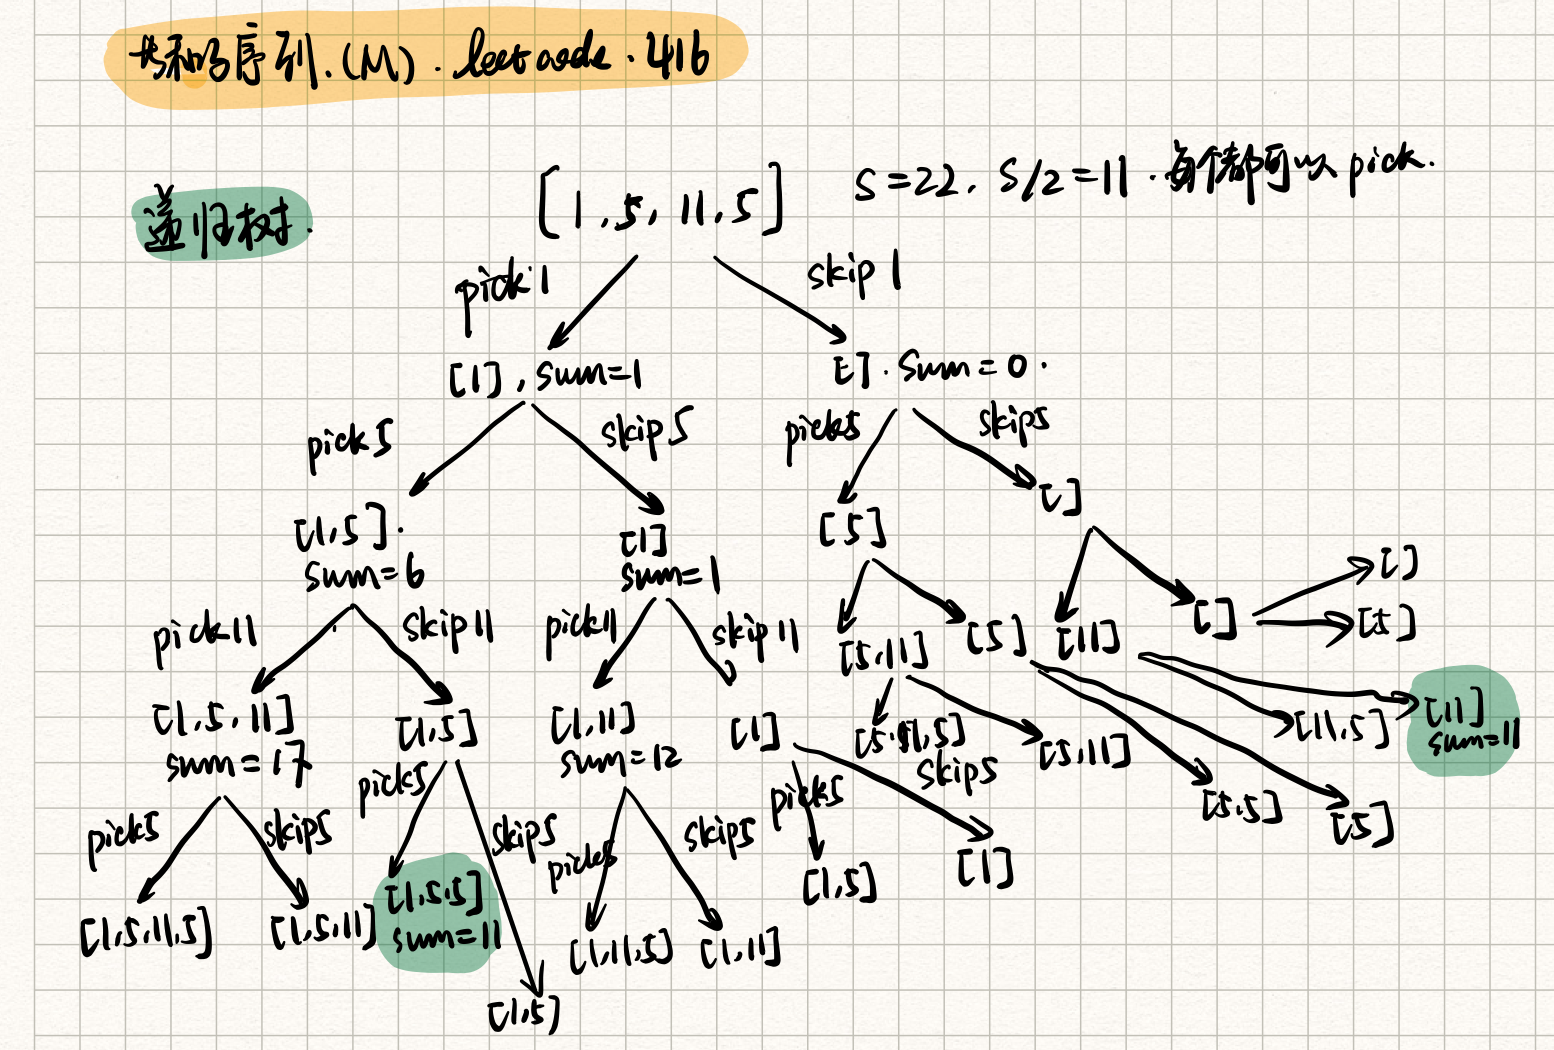 共和子序列.(M). leetcode.416
递归树.
[1,5,11,5]
S=22, S/2=11.每个都可以pick.
pick 1
skip 1
[1], sum=1
[]. sum=0.
pick 5
skip 5
pick5
skip5
[1,5].
sum=6
[1]
sum=1
[5]
[]
pick 11
skip 11
pick 11
skip 11
[5,11]
[5]
[11]
[]
[]
[5]
[1,5,11]
sum=17
[1,5]
[1,11]
sum=12
[1]
[5,11,5]
[5,11]
[11,5]
[11]
sum=11
pick5
skip5
pick5
skip5
pick5
skip5
pick5
skip5
[5,5]
[5]
[1,5,11,5]
[1,5,11]
[1,5,5]
sum=11
[1,5]
[1,11,5]
[1,11]
[1,5]
[1]